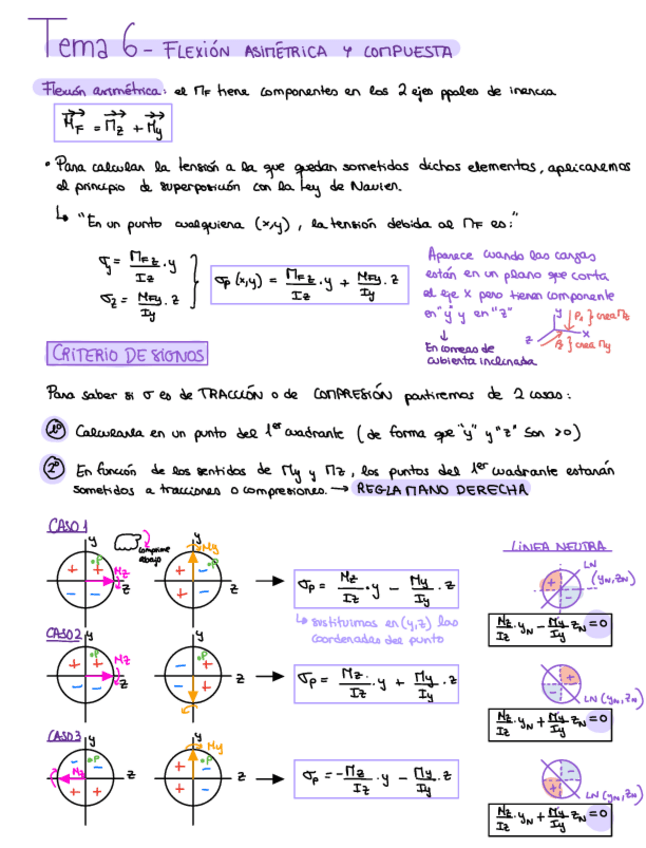 Tema 6 - FLEXIÓN ASIMÉTRICA Y COMPUESTA
Flexión asimétrica: el MF tiene componentes en los 2 ejes ppales de inercia
MF = Mz + My
• Para calcular la tensión a la que quedan sometidos dichos elementos, aplicaremos
el principio de superposición con la Ley de Navier.
↳ "En un punto cualquiera (x,y), la tensión debida al MF es:"
σy = MFz/Iz · y
σz = MFy/Iy · z
σp (x,y) = MFz/Iz · y + MFy/Iy · z
Aparece cuando las cargas
están en un plano que corta
el eje x pero tienen componente
en "y" y en "z"
↓
En correas de
cubierta inclinada
y
P1 } crea Mz
x
z
} crea My
CRITERIO DE SIGNOS
Para saber si σ es de TRACCIÓN o de COMPRESIÓN partiremos de 2 cosas:
1º Calcularla en un punto del 1er cuadrante (de forma que "y" y "z" son >0)
2º En función de los sentidos de My y Mz, los puntos del 1er cuadrante estarán
sometidos a tracciones o compresiones. → REGLA MANO DERECHA
CASO 1
comprime
abajo
y
+ + P
Mz
z
- -
y
My
+ - P
z
+ -
→ σp = Mz/Iz · y - My/Iy · z
↳ sustituimos en (y,z) las
coordenadas del punto
LÍNEA NEUTRA
LN
(yN, zN)
+ -
Mz/Iz · yN - My/Iy · zN = 0
CASO 2
y
+ + P
Mz
z
- -
y
- + P
z
- +
→ σp = Mz/Iz · y + My/Iy · z
+
-
LN (yN, zN)
Mz/Iz · yN + My/Iy · zN = 0
CASO 3
y
- - P
Mz
z
+ +
y
My
+ - P
z
+ -
→ σp = -Mz/Iz · y - My/Iy · z
-
+
LN (yN, zN)
Mz/Iz · yN + My/Iy · zN = 0